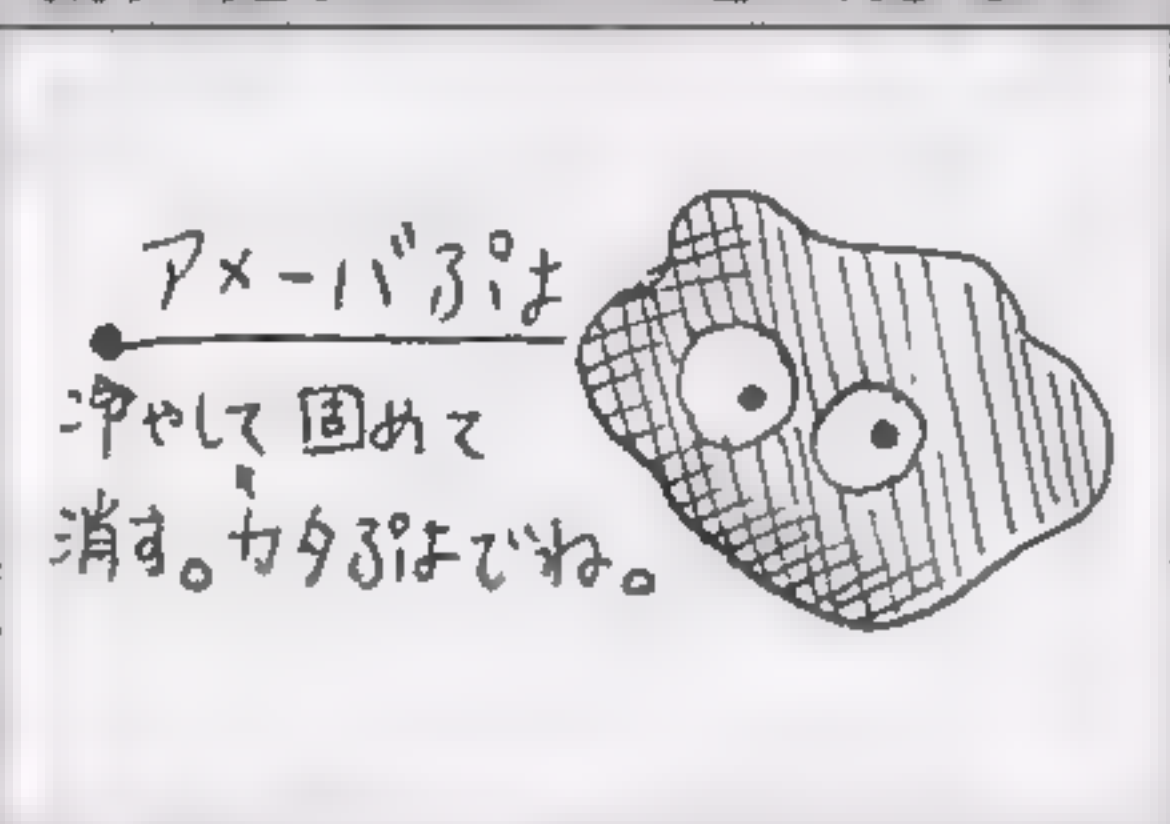 アメーバぷよ
冷やして固めて
消す。カタぷよでね。